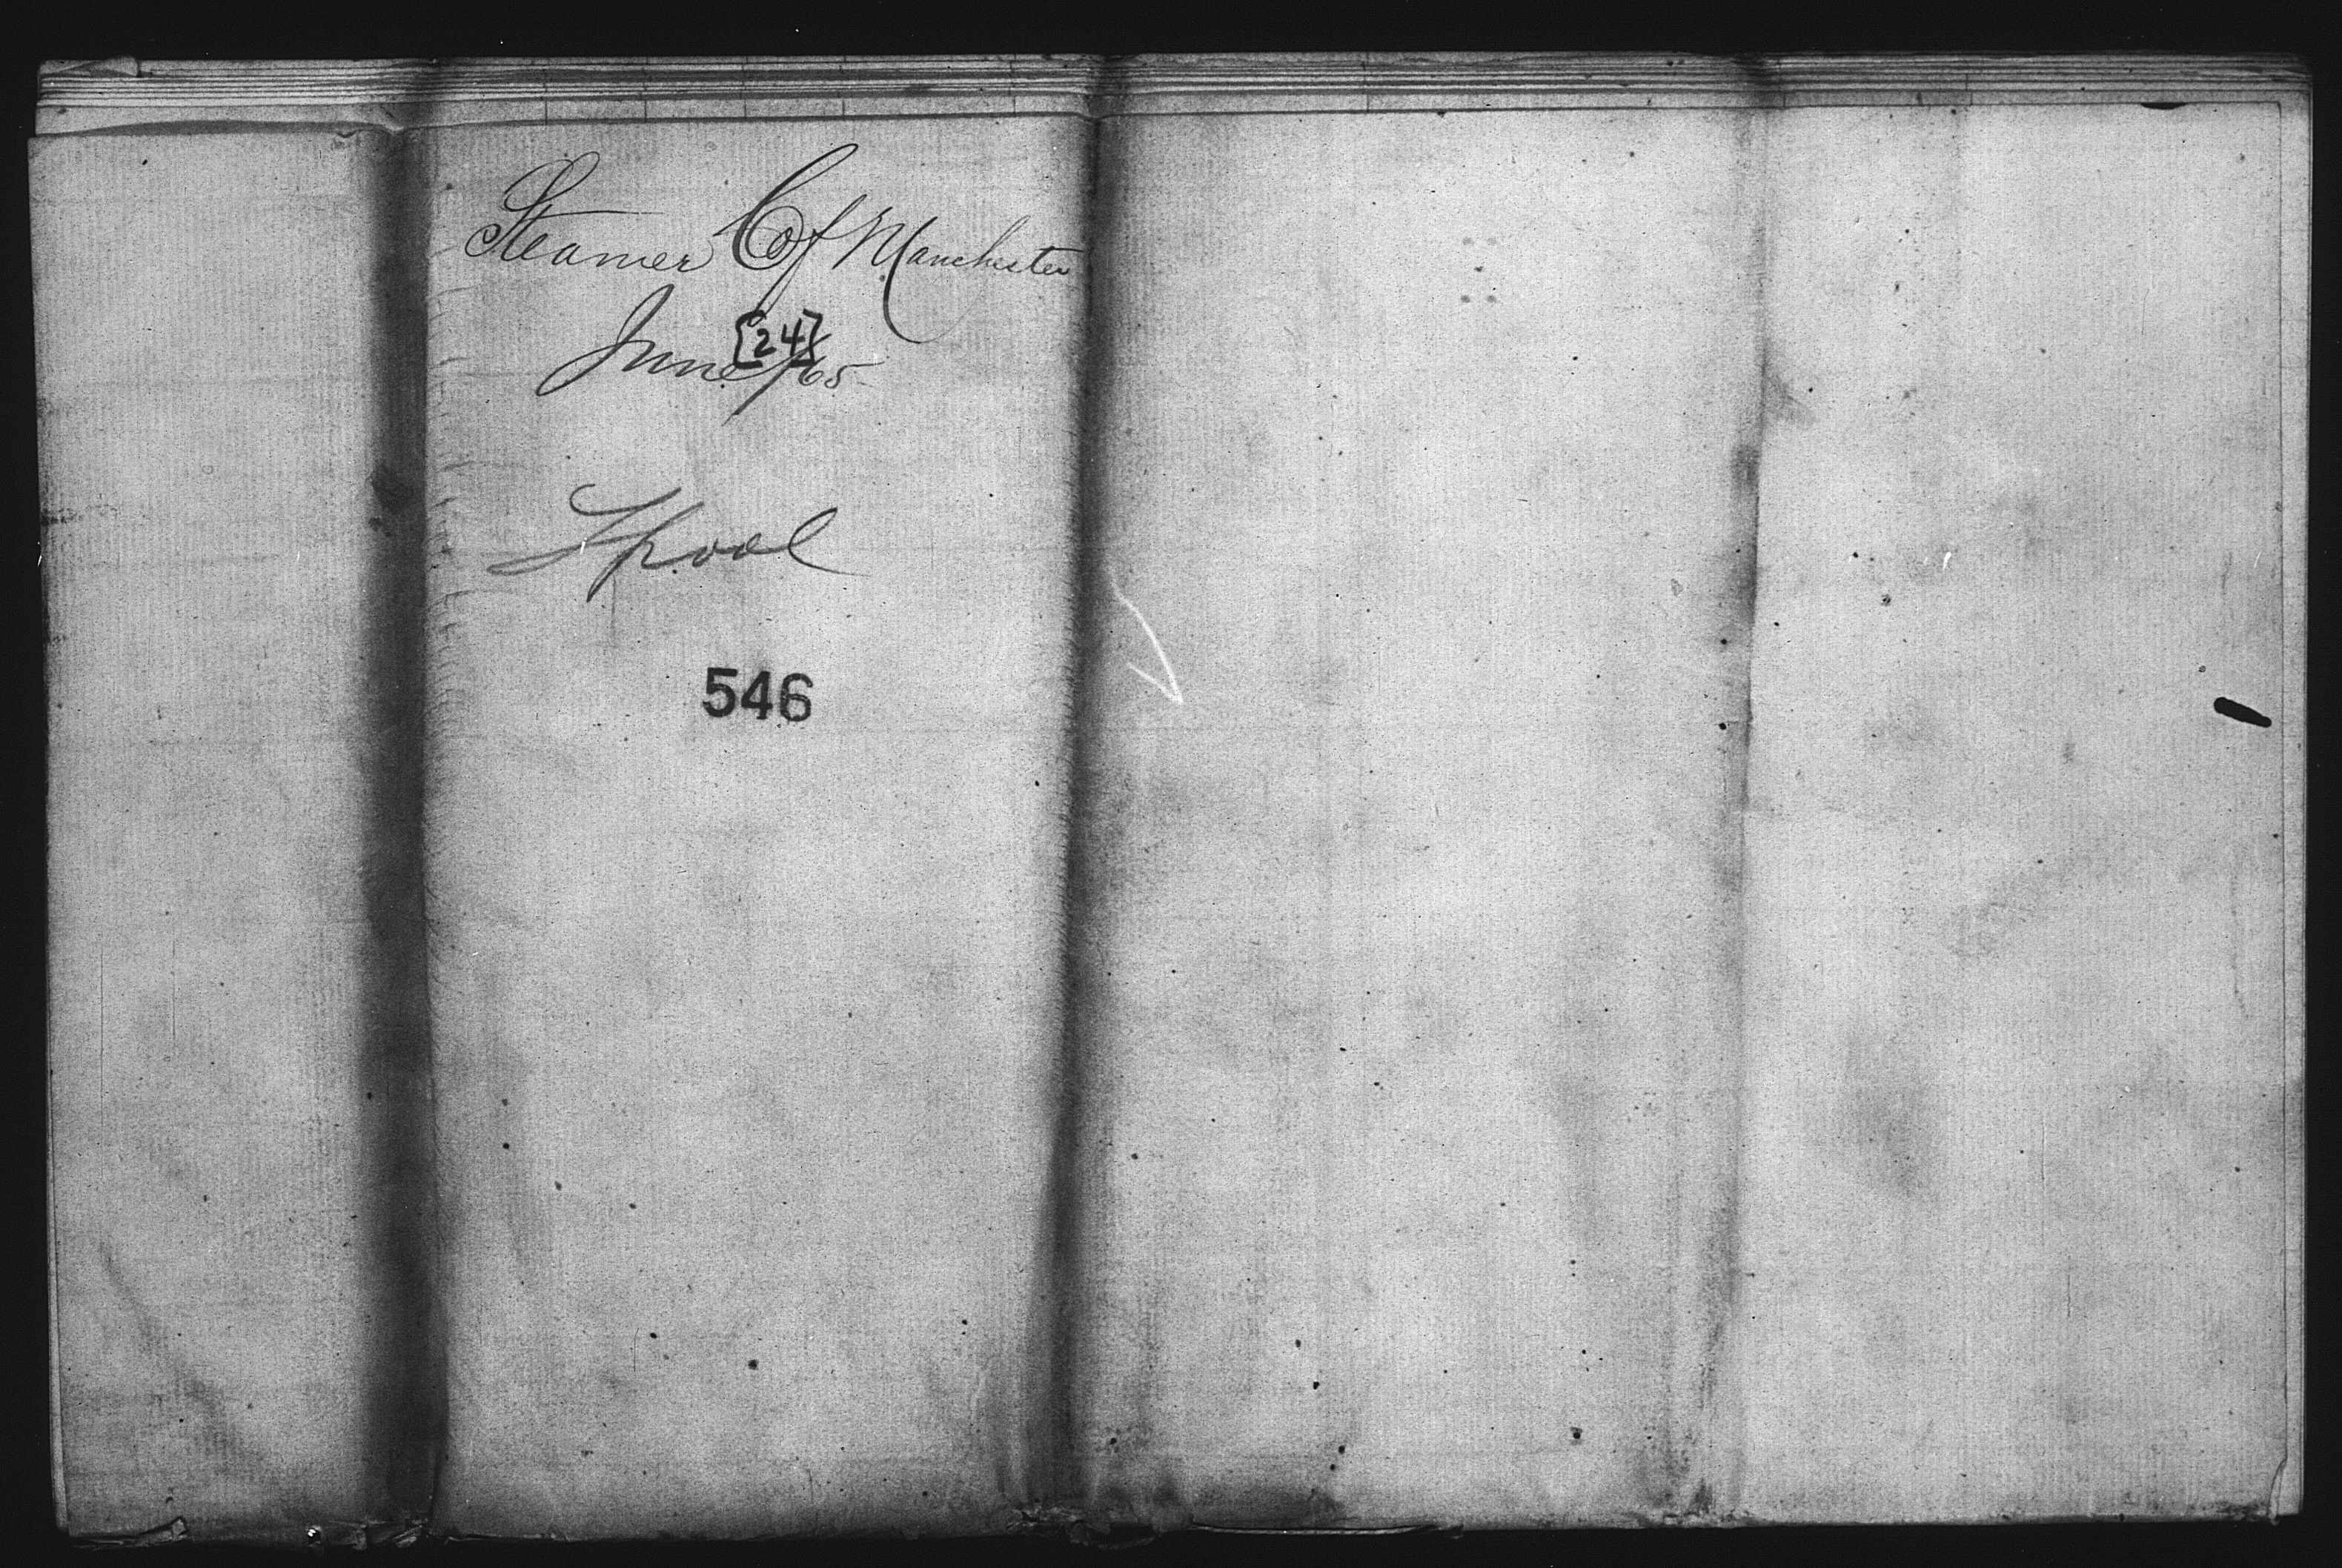 Steamer C of Manchester
[24]
June /65
Lpool
546